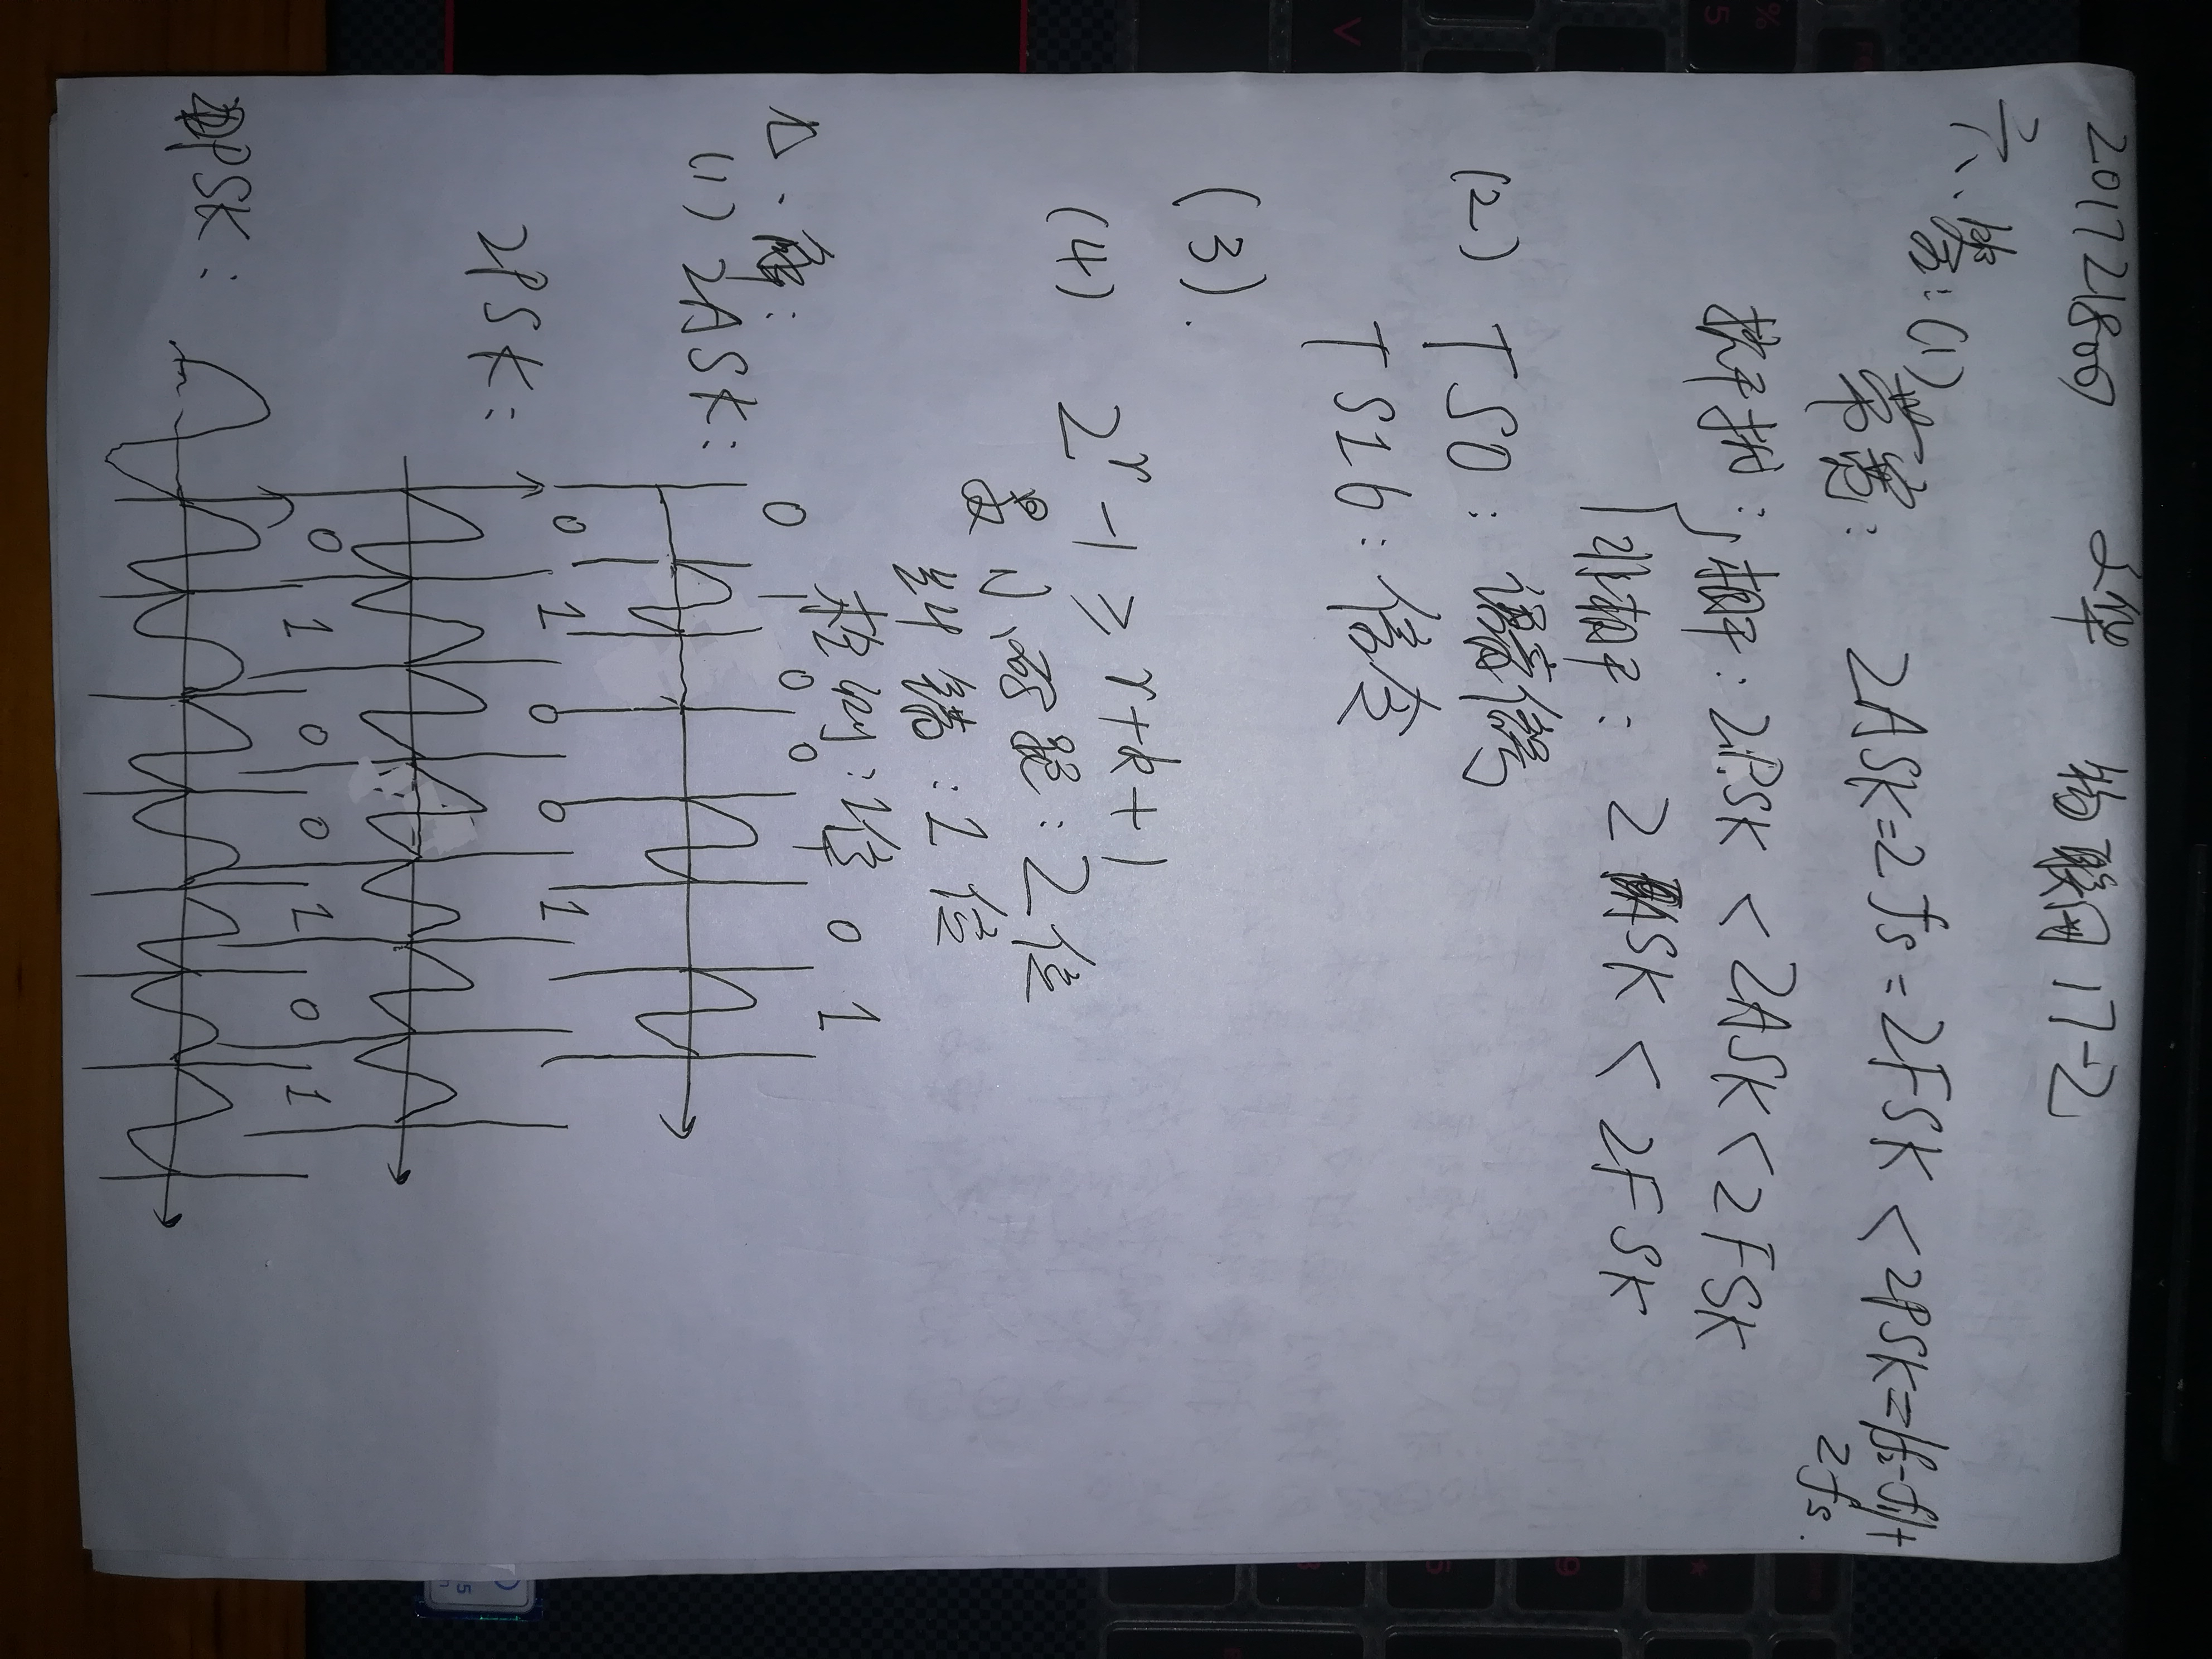 2017218007 文华 物联网17-2
六、答:(1)
带宽: 2ASK=2fs=2FSK<2PSK=|f₂-f₁|+
2fs.
抗干扰: 相干: 2PSK < 2ASK < 2FSK
非相干: 2ASK < 2FSK
(2) TS0: 语音信号
TS16: 信令
(3).
(4) 2^r-1≥r+k+1
最小码距:2位
纠错:1位
检测:1位
解:
0 1 0 0 1 0 1
(1) 2ASK:
0 1 0 0 1
2PSK:
0 1 0 0 1 0 1
2DPSK: